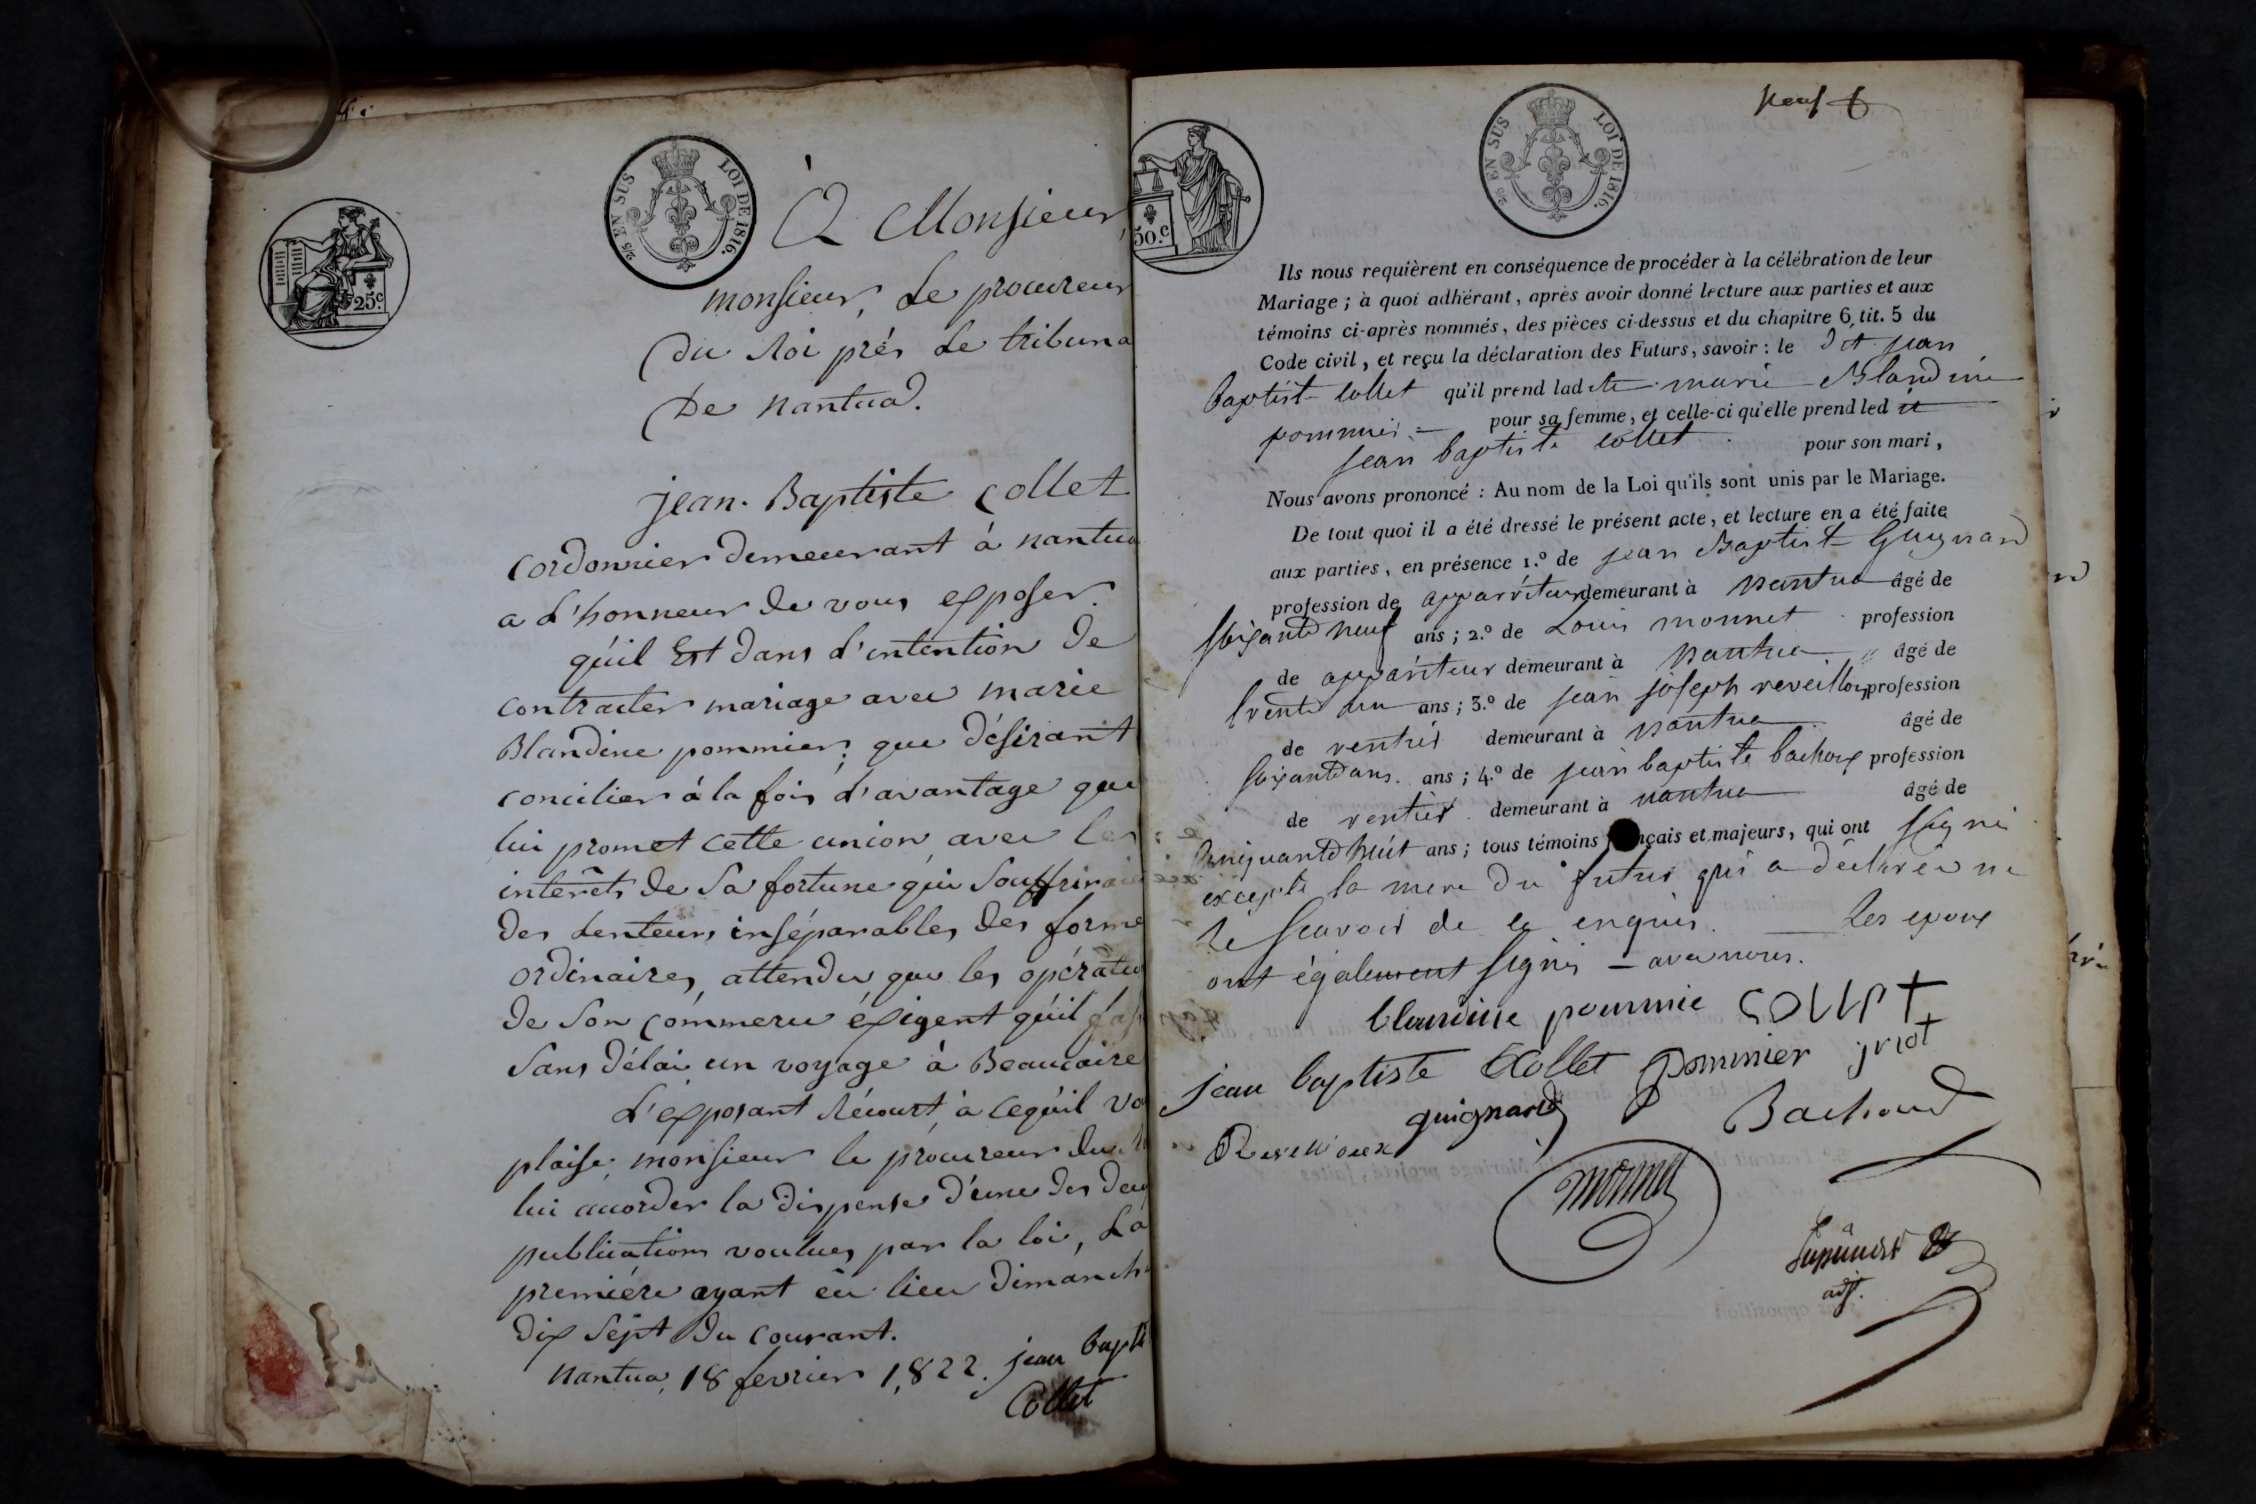 2/5 EN SUS LOI DE 1816.
25.c
À Monsieur,
monsieur, Le procureur
Du Roi près Le tribuna
De Nantua.
jean-Baptiste Collet
Cordonnier demeurant à Nantua
a L'honneur de vous exposer
qu'il Est dans L'intention De
contracter mariage avec marie
Blandine pommier; que Désirant
concilier à la fois L'avantage que
lui promet cette union avec les
interêts de Sa fortune qui Souffrirai
Des Lenteurs inséparables Des forme
ordinaires, attendu que les opérati
De Son Commerce éxigent qu'il fas
Sans Délai un voyage à Beaucaire
L'exposant Récourt à cequ'il vo
plaise monsieur le procureur du
lui accorder la Dispense D'une Des deu
publications voulues par la loi, La
première ayant eu lieu Dimanch
Dix Sept Du Courant.
Nantua, 18 fevrier 1,822. jean bapti
Collet
50.c
2/5 EN SUS LOI DE 1816.
neuf
Ils nous requièrent en conséquence de procéder à la célébration de leur
Mariage ; à quoi adhérant, après avoir donné lecture aux parties et aux
témoins ci-après nommés, des pièces ci-dessus et du chapitre 6, tit. 5 du
Code civil, et reçu la déclaration des Futurs, savoir : le dit jean
baptist collet qu'il prend lad ite marie Blandine
pommier pour sa femme, et celle-ci qu'elle prend led it
jean baptiste collet pour son mari,
Nous avons prononcé : Au nom de la Loi qu'ils sont unis par le Mariage.
De tout quoi il a été dressé le présent acte, et lecture en a été faite
aux parties, en présence 1.º de jean Baptist Guignard
profession de apparriteur demeurant à Nantua âgé de
soixante neuf ans ; 2.º de Louis monnet profession
de apparriteur demeurant à Nantua âgé de
trente un ans ; 3.º de jean joseph reveilloux profession
de rentier demeurant à Nantua âgé de
soixante ans. ans ; 4.º de jean baptiste bachoux profession
de rentier demeurant à Nantua âgé de
Cinquante huit ans ; tous témoins çais et majeurs, qui ont signé
excepté la mere Du futur qui a déclaré ne
le scavoir de ce enquis. Les epoux
ont également signés - avec nous.
blandine poummie Collet
jean baptiste Collet pommier
guignard Bachoud
Reveilloux
monnet
adj.